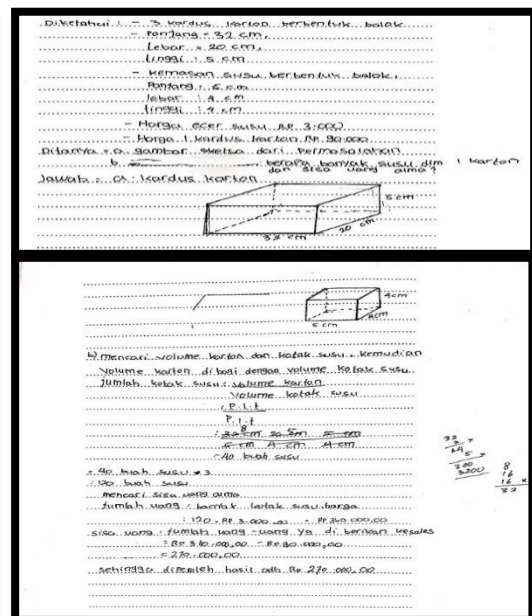 Diketahui : - 3 kardus karton berbentuk balok
- Panjang = 32 cm,
Lebar = 20 cm,
Linggi : 5 cm
- kemasan susu berbentuk balok,
Panjang : 5 cm
lebar : 4 cm
tinggi : 4 cm
- Harga ecer susu Rp 3.000
- Harga 1 kardus karton Rp 90.000
Ditanya = a. gambar sketsa dari permasalahan
b. berapa banyak susu dlm 1 karton
dan sisa uang alma?
Jawab = a. kardus karton
5 cm
20 cm
32 cm
4cm
4cm
5 cm
b) mencari volume karton dan kotak susu. kemudian
volume karton dibagi dengan volume kotak susu
Jumlah kotak susu : volume karton
volume kotak susu
: P.l.t
P.l.t
8 5
: 32 cm 20 cm 5 cm
5 cm 4 cm 4 cm
= 40 buah susu
= 40 buah susu * 3
: 120 buah susu
mencari sisa uang alma
Jumlah uang : banyak kotak susu . harga
: 120 . Rp 3.000,00 = Rp 360.000,00
sisa uang : Jumlah uang - uang yg di berikan kesales
= Rp 360.000,00 - Rp 90.000,00
= 270.000,00
sehingga diperoleh hasil adh Rp 270.000,00